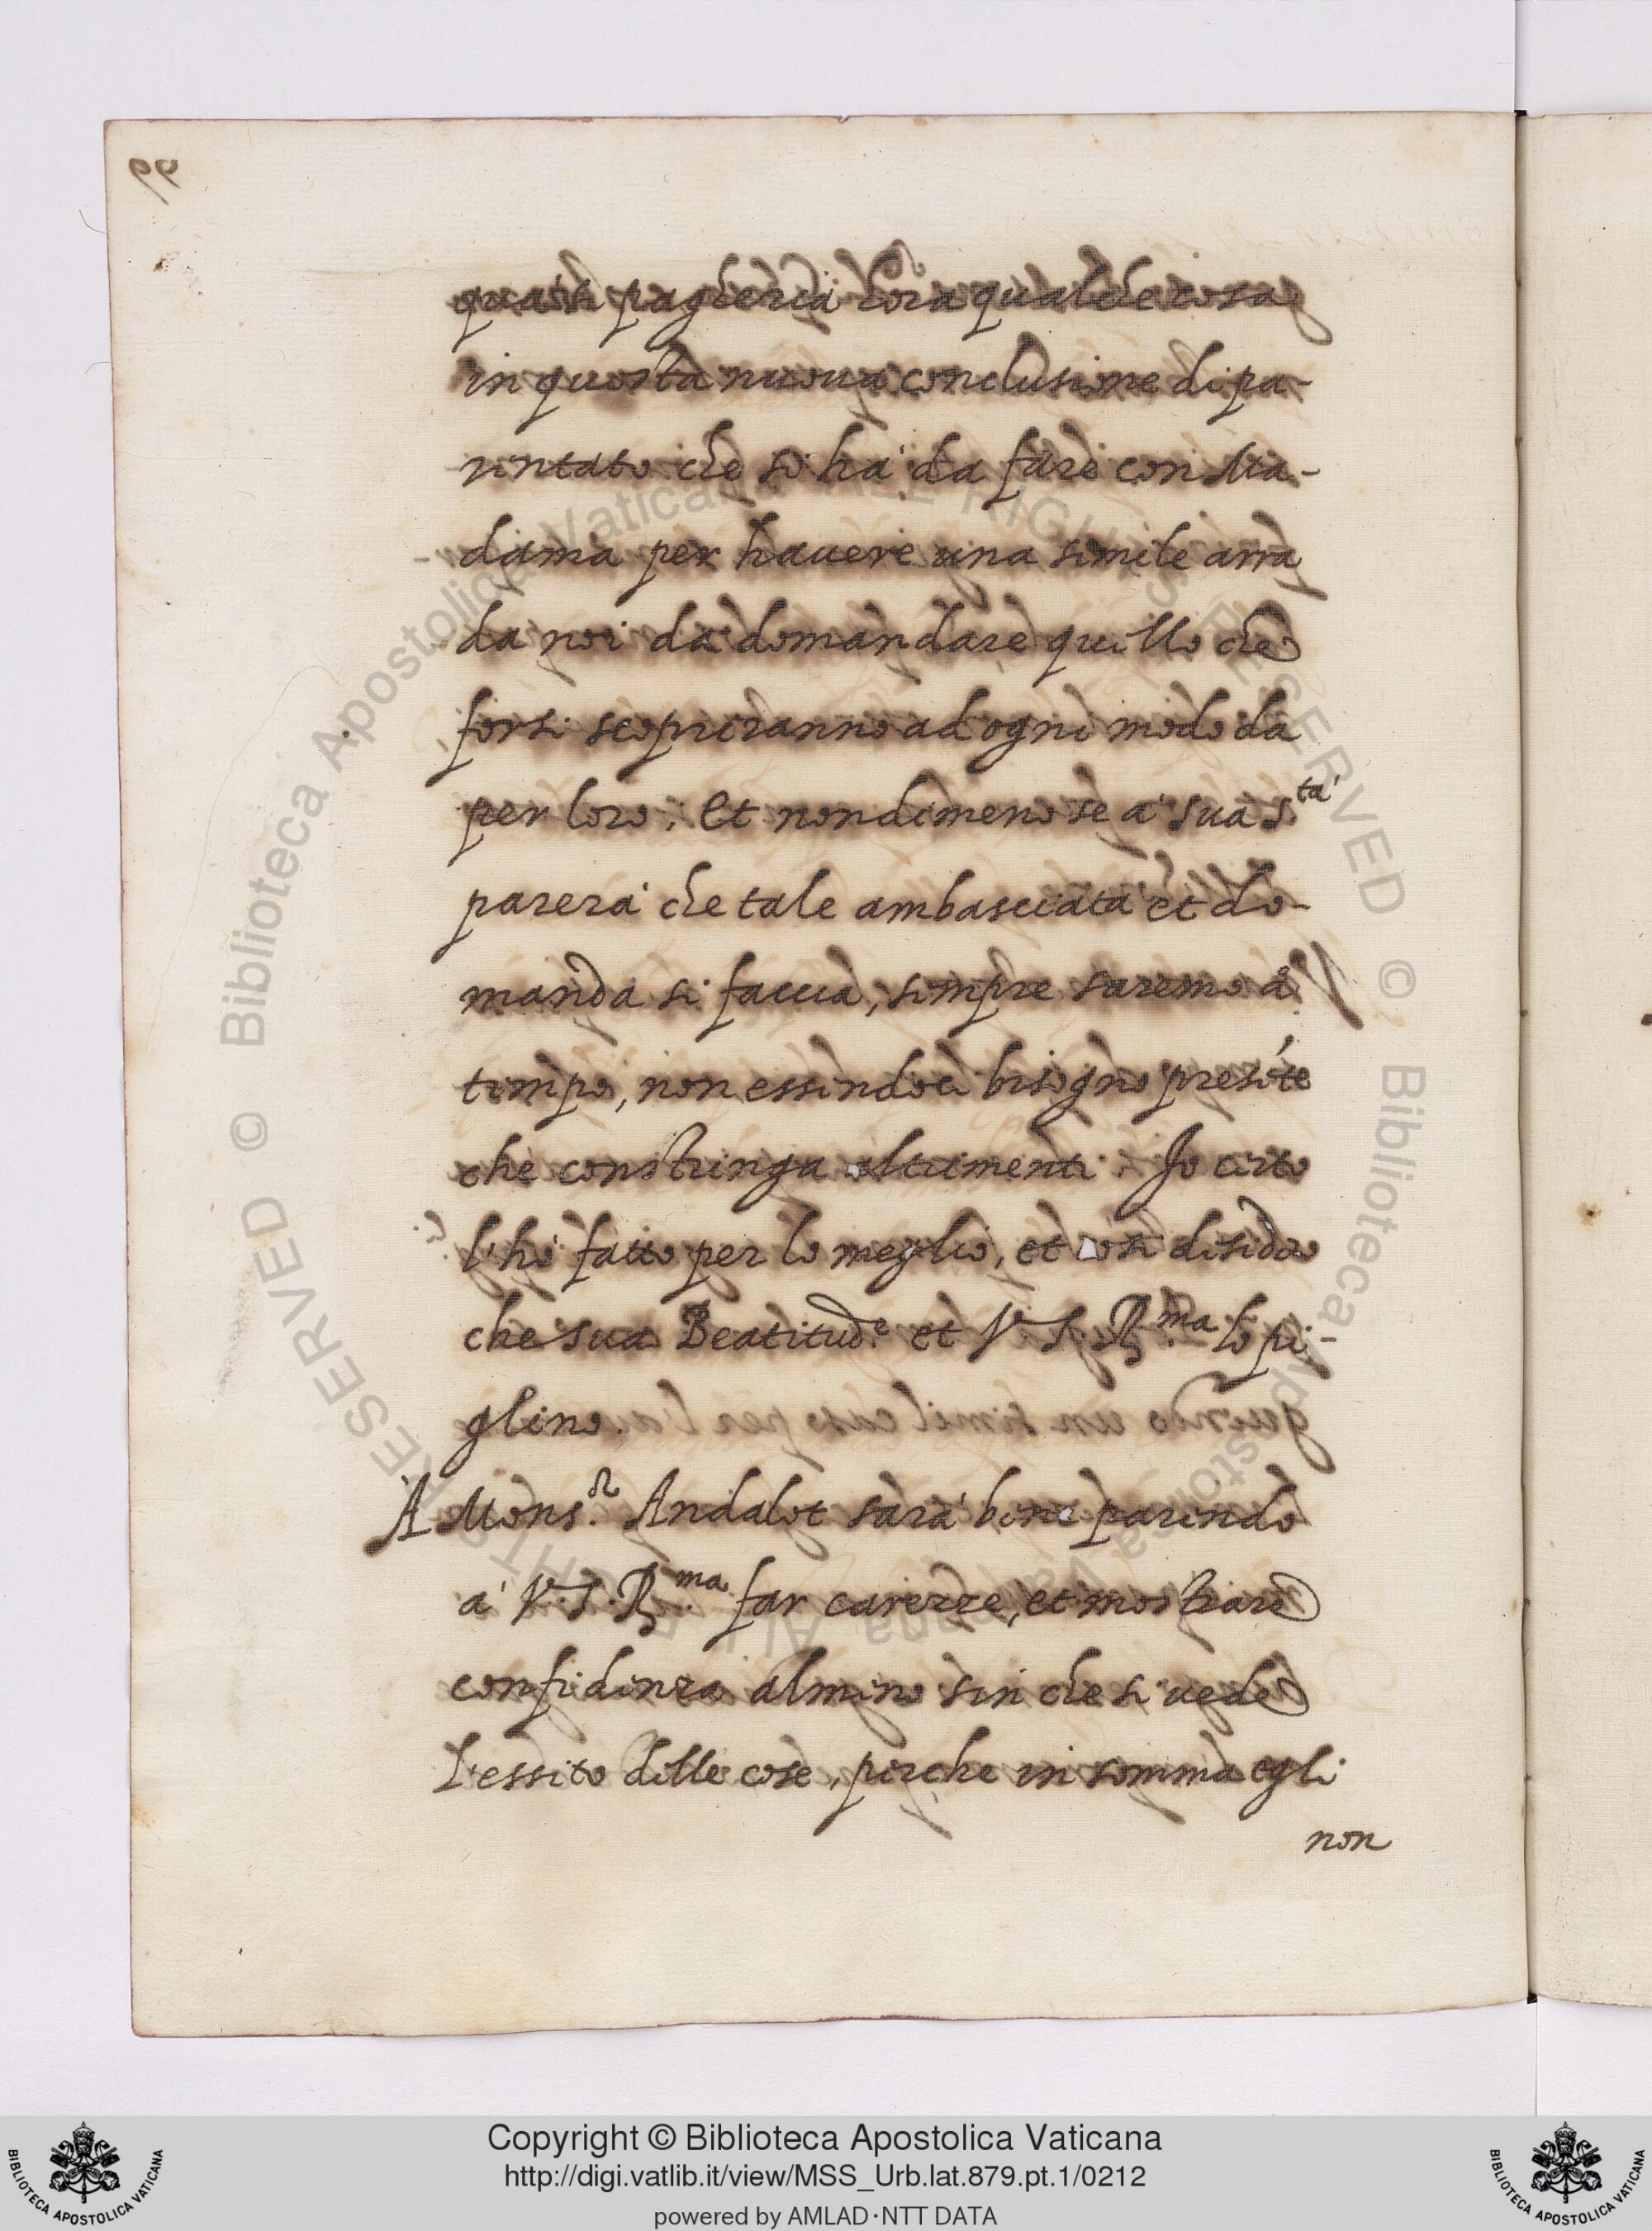 quasi pagheria hora qualche cosa
in questa nuova conclusione di pa-
rentato che si ha da fare con Ma-
dama per havere una simile arra
da noi da domandare quello che
forsi scopriranno ad ogni modo da
per loro. Et nondimeno se à sua S.tà
parerà che tale ambasciata et do-
manda si faccia, sempre saremo à
tempo, non essendoci bisogno presẽte
che constringa altrimenti. Io certo
l'hò fatto per lo meglio, et così desidero
che sua Beatitud.e et V. S. R.ma lo pi-
glino.
A Mons.r Andalot sarà bene parendo
à V. S. R.ma far carezze, et mostrare
confidenza almeno sin che si vede
L'essito delle cose, perche in somma egli
non
Copyright © Biblioteca Apostolica Vaticana
http://digi.vatlib.it/view/MSS_Urb.lat.879.pt.1/0212
powered by AMLAD·NTT DATA
BIBLIOTECA APOSTOLICA VATICANA
BIBLIOTECA APOSTOLICA VATICANA